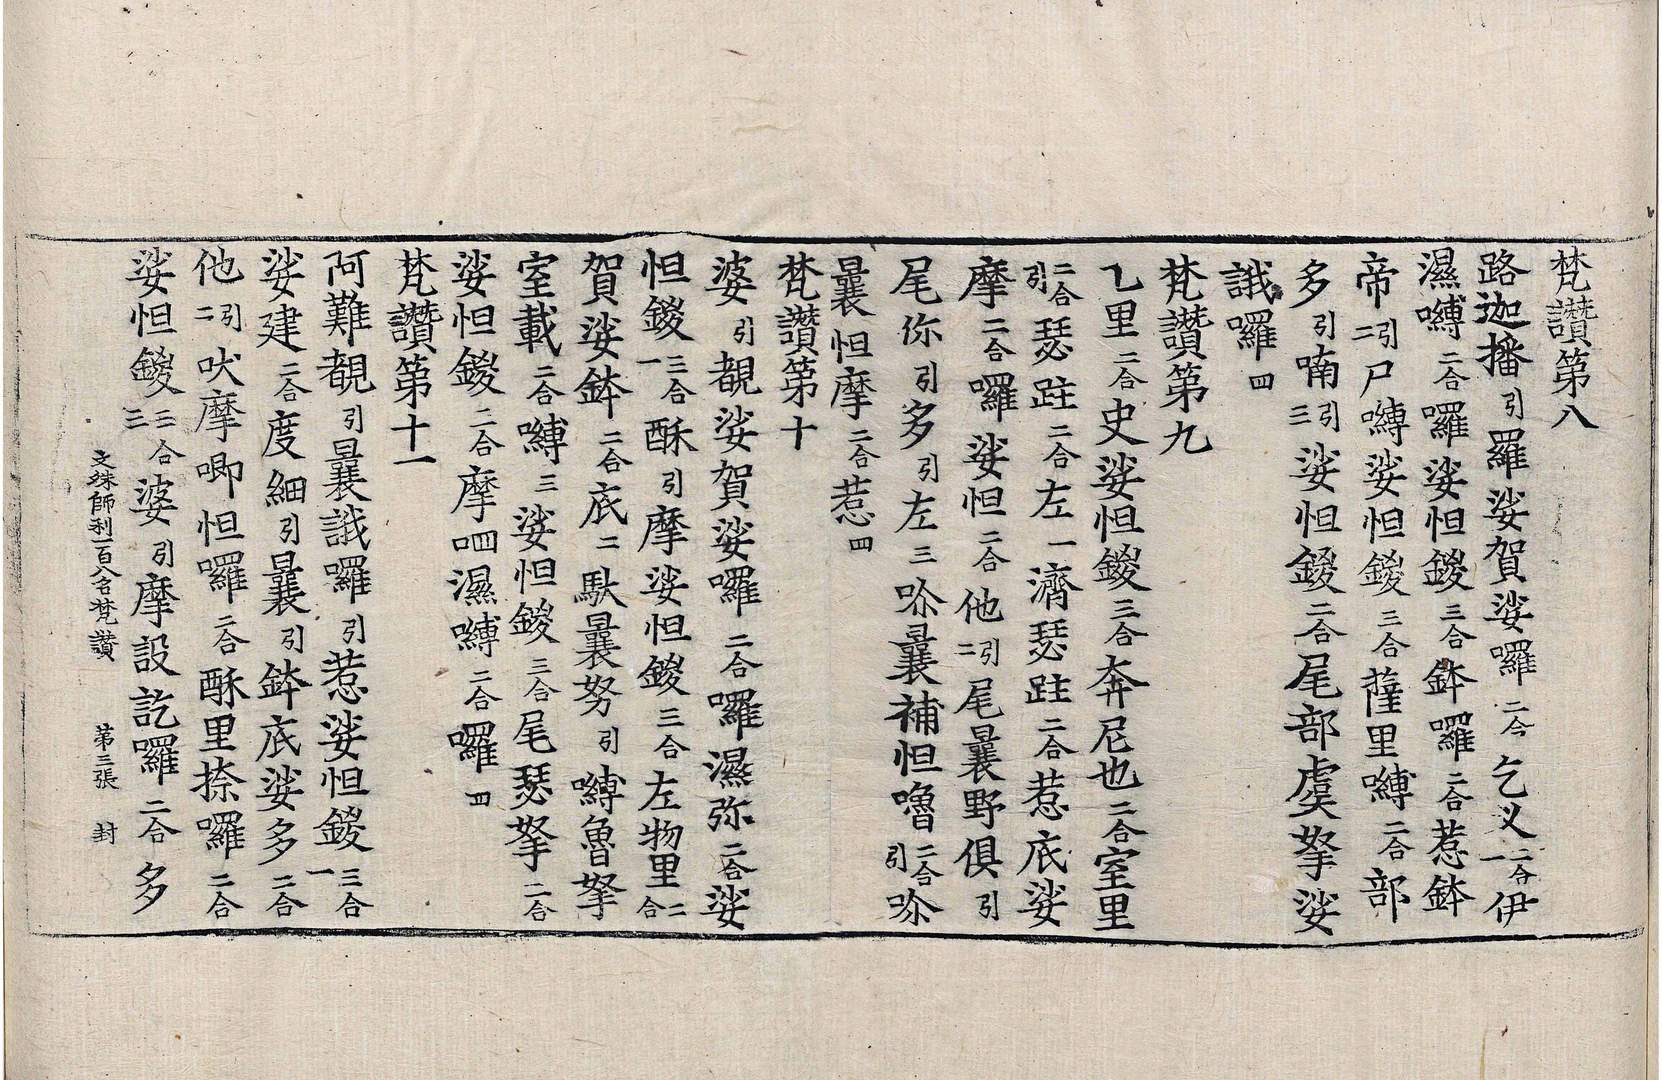 梵讚第八
路迦播引羅娑賀娑囉二合乞义二合一伊
濕嚩二合囉娑怛鑁三合鉢囉二合惹鉢
帝引二尸嚩娑怛鑁三合薩里嚩二合部
多引喃引三娑怛鑁二合尾部虞拏娑
誐囉四
梵讚第九
乙里二合史娑怛鑁三合奔尼也二合室里
二合引瑟跓二合左一濟瑟跓二合惹底娑
摩二合囉娑怛二合他引二尾曩野俱引
尾你引多引左三吩曩補怛嚕二合引吩
曩怛摩二合惹四
梵讚第十
婆引覩娑賀娑囉二合囉濕弥二合娑
怛鑁三合一酥引摩娑怛鑁三合左物里二合
賀娑鉢二合底二馱曩努引嚩魯拏
室載二合嚩三娑怛鑁三合尾瑟拏二合
娑怛鑁二合摩呬濕嚩二合囉四
梵讚第十一
阿難覩引曩誐囉引惹娑怛鑁三合一
娑建二合度細引曩引鉢底娑多二合
他引二吠摩唧怛囉二合酥里捺囉二合
娑怛鑁二合三婆引摩設訖囉二合多
文殊師利一百八名梵讚 第三張 封